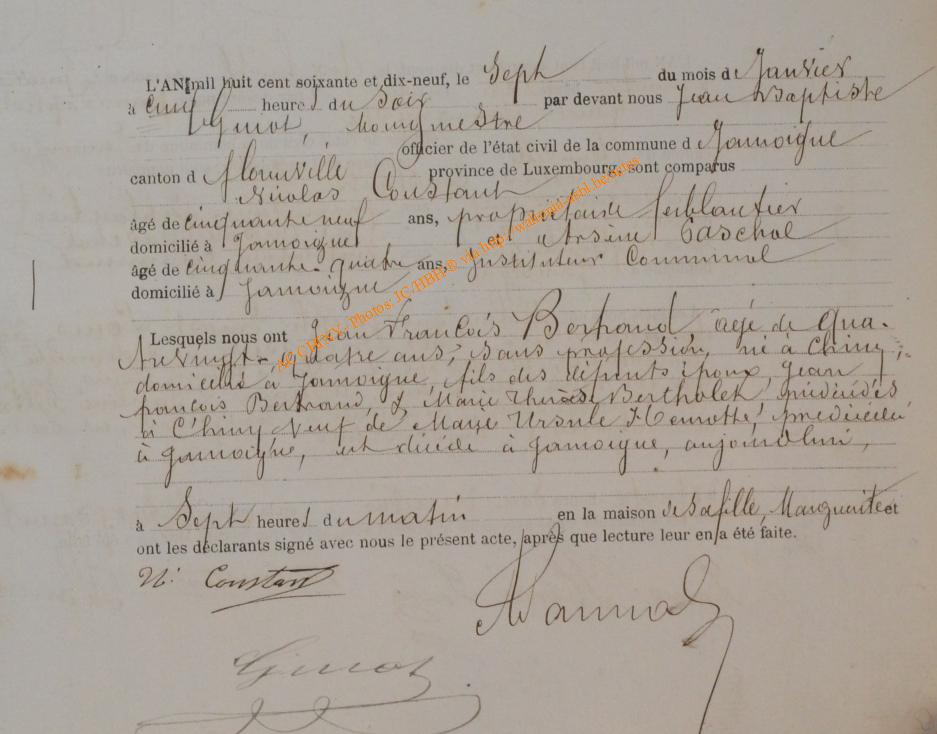 L'AN mil huit cent soixante et dix-neuf, le Sept du mois de Janvier
à cinq heures du Soir par devant nous Jean Baptiste
Guiot, Bourgmestre
officier de l'état civil de la commune d Jamoigne
canton d florenville province de Luxembourg, sont comparus
Nicolas Constant
âgé de cinquante neuf ans, propriétaire ferblantier
domicilié à Jamoigne et Arsène Paschal
âgé de cinquante-quatre ans, Instituteur Communal
domicilié à Jamoigne
Lesquels nous ont Jean François Bertrand âgé de Qua-
tre vingt-quatre ans, sans profession, né à Chiny,
domicilié à Jamoigne, fils des défunts époux Jean
françois Bertrand, & Marie Thérèse Bertholet prédécédés
à Chiny Veuf de Marie Ursule Henrotte, prédécédée
à Jamoigne, est décédé à Jamoigne, aujourdhui,
à Sept heures du matin en la maison de sa fille, Marguerite et
ont les déclarants signé avec nous le présent acte, après que lecture leur en a été faite.
N. Constant
Guiot
AC CHINY - Photos: JC/HBH © via http://